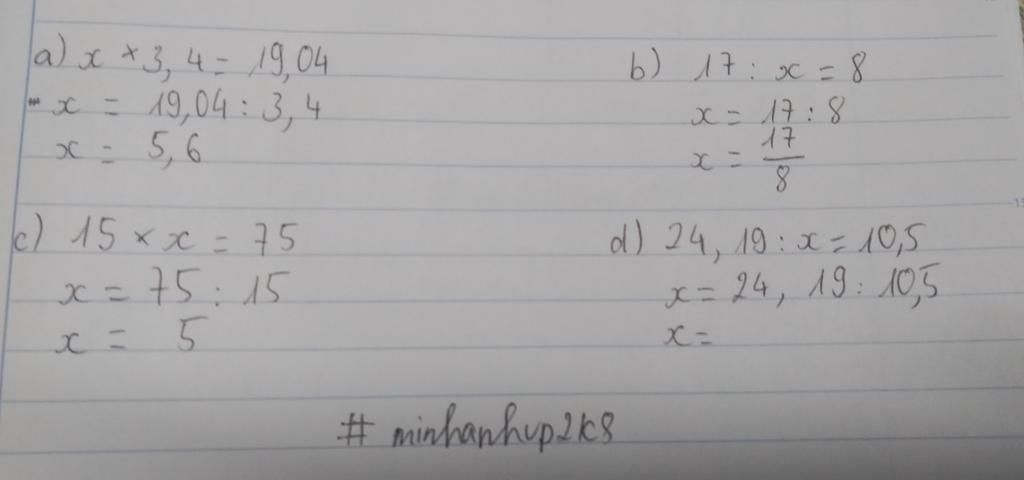 a) x × 3,4 = 19,04
x = 19,04 : 3,4
x = 5,6
b) 17 : x = 8
x = 17 : 8
x = 17/8
c) 15 × x = 75
x = 75 : 15
x = 5
d) 24,19 : x = 10,5
x = 24,19 : 10,5
x =
# minhanhvp2k8